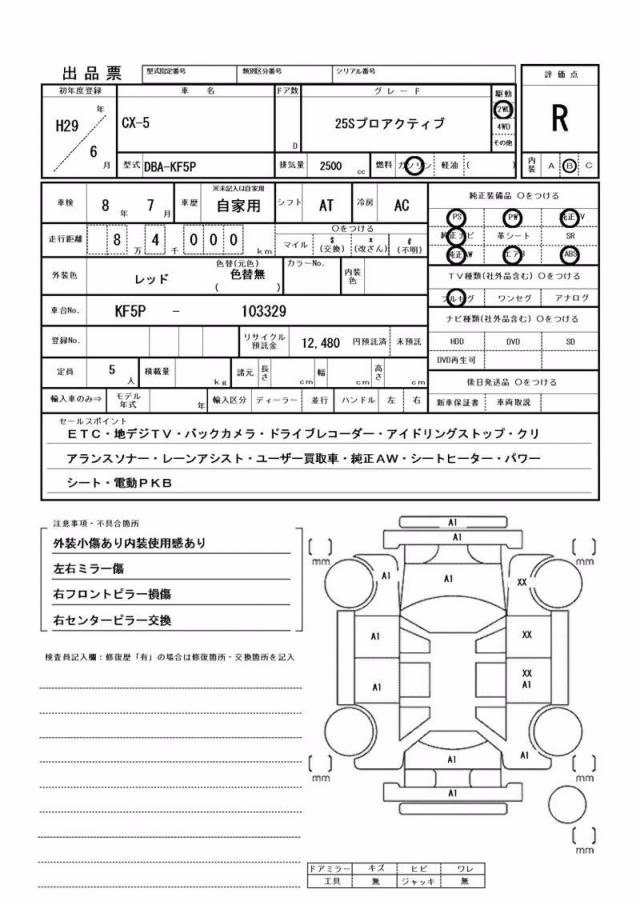 出品票 型式指定番号 類別区分番号 シリアル番号 評価点
初年度登録 車名 ドア数 グレード 駆動
H29年 CX-5 25Sプロアクティブ 2WD R
6月 D 4WD
その他
型式 DBA-KF5P 排気量 2500cc 燃料 ガソリン 軽油 ( ) 内装 A B C
車検 8年 7月 車歴 ※未記入は自家用 自家用 シフト AT 冷房 AC 純正装備品 ○をつける
PS PW 純正TV
走行距離 8万 4千 000km ○をつける マイル $(交換) x(改ざん) #(不明) 純正ナビ 革シート SR
純正AW エアB ABS
外装色 レッド 色替(元色) 色替無 ( ) カラーNo. 内装色 TV種類(社外品含む) ○をつける
フルセグ ワンセグ アナログ
車台No. KF5P - 103329 ナビ種類(社外品含む) ○をつける
登録No. リサイクル預託金 12,480 円預託済 未預託 HDD DVD SD
DVD再生可
定員 5人 積載量 kg 諸元 長さ cm 幅 cm 高さ cm 後日発送品 ○をつける
輸入車のみ⇒ モデル年式 年 輸入区分 ディーラー 並行 ハンドル 左 右 新車保証書 車両取説
セールスポイント
ETC・地デジTV・バックカメラ・ドライブレコーダー・アイドリングストップ・クリ
アランスソナー・レーンアシスト・ユーザー買取車・純正AW・シートヒーター・パワー
シート・電動PKB
注意事項・不具合箇所
外装小傷あり内装使用感あり
左右ミラー傷
右フロントピラー損傷
右センターピラー交換
検査員記入欄:修復歴「有」の場合は修復箇所・交換箇所を記入
A1
A1
[ ] mm [ ] mm
A1 A1 XX
A1 XX
A1 XX
A1
A1 A1
[ ] mm [ ] mm
A1
[ ] mm
ドアミラー キズ ヒビ ワレ
工具 無 ジャッキ 無